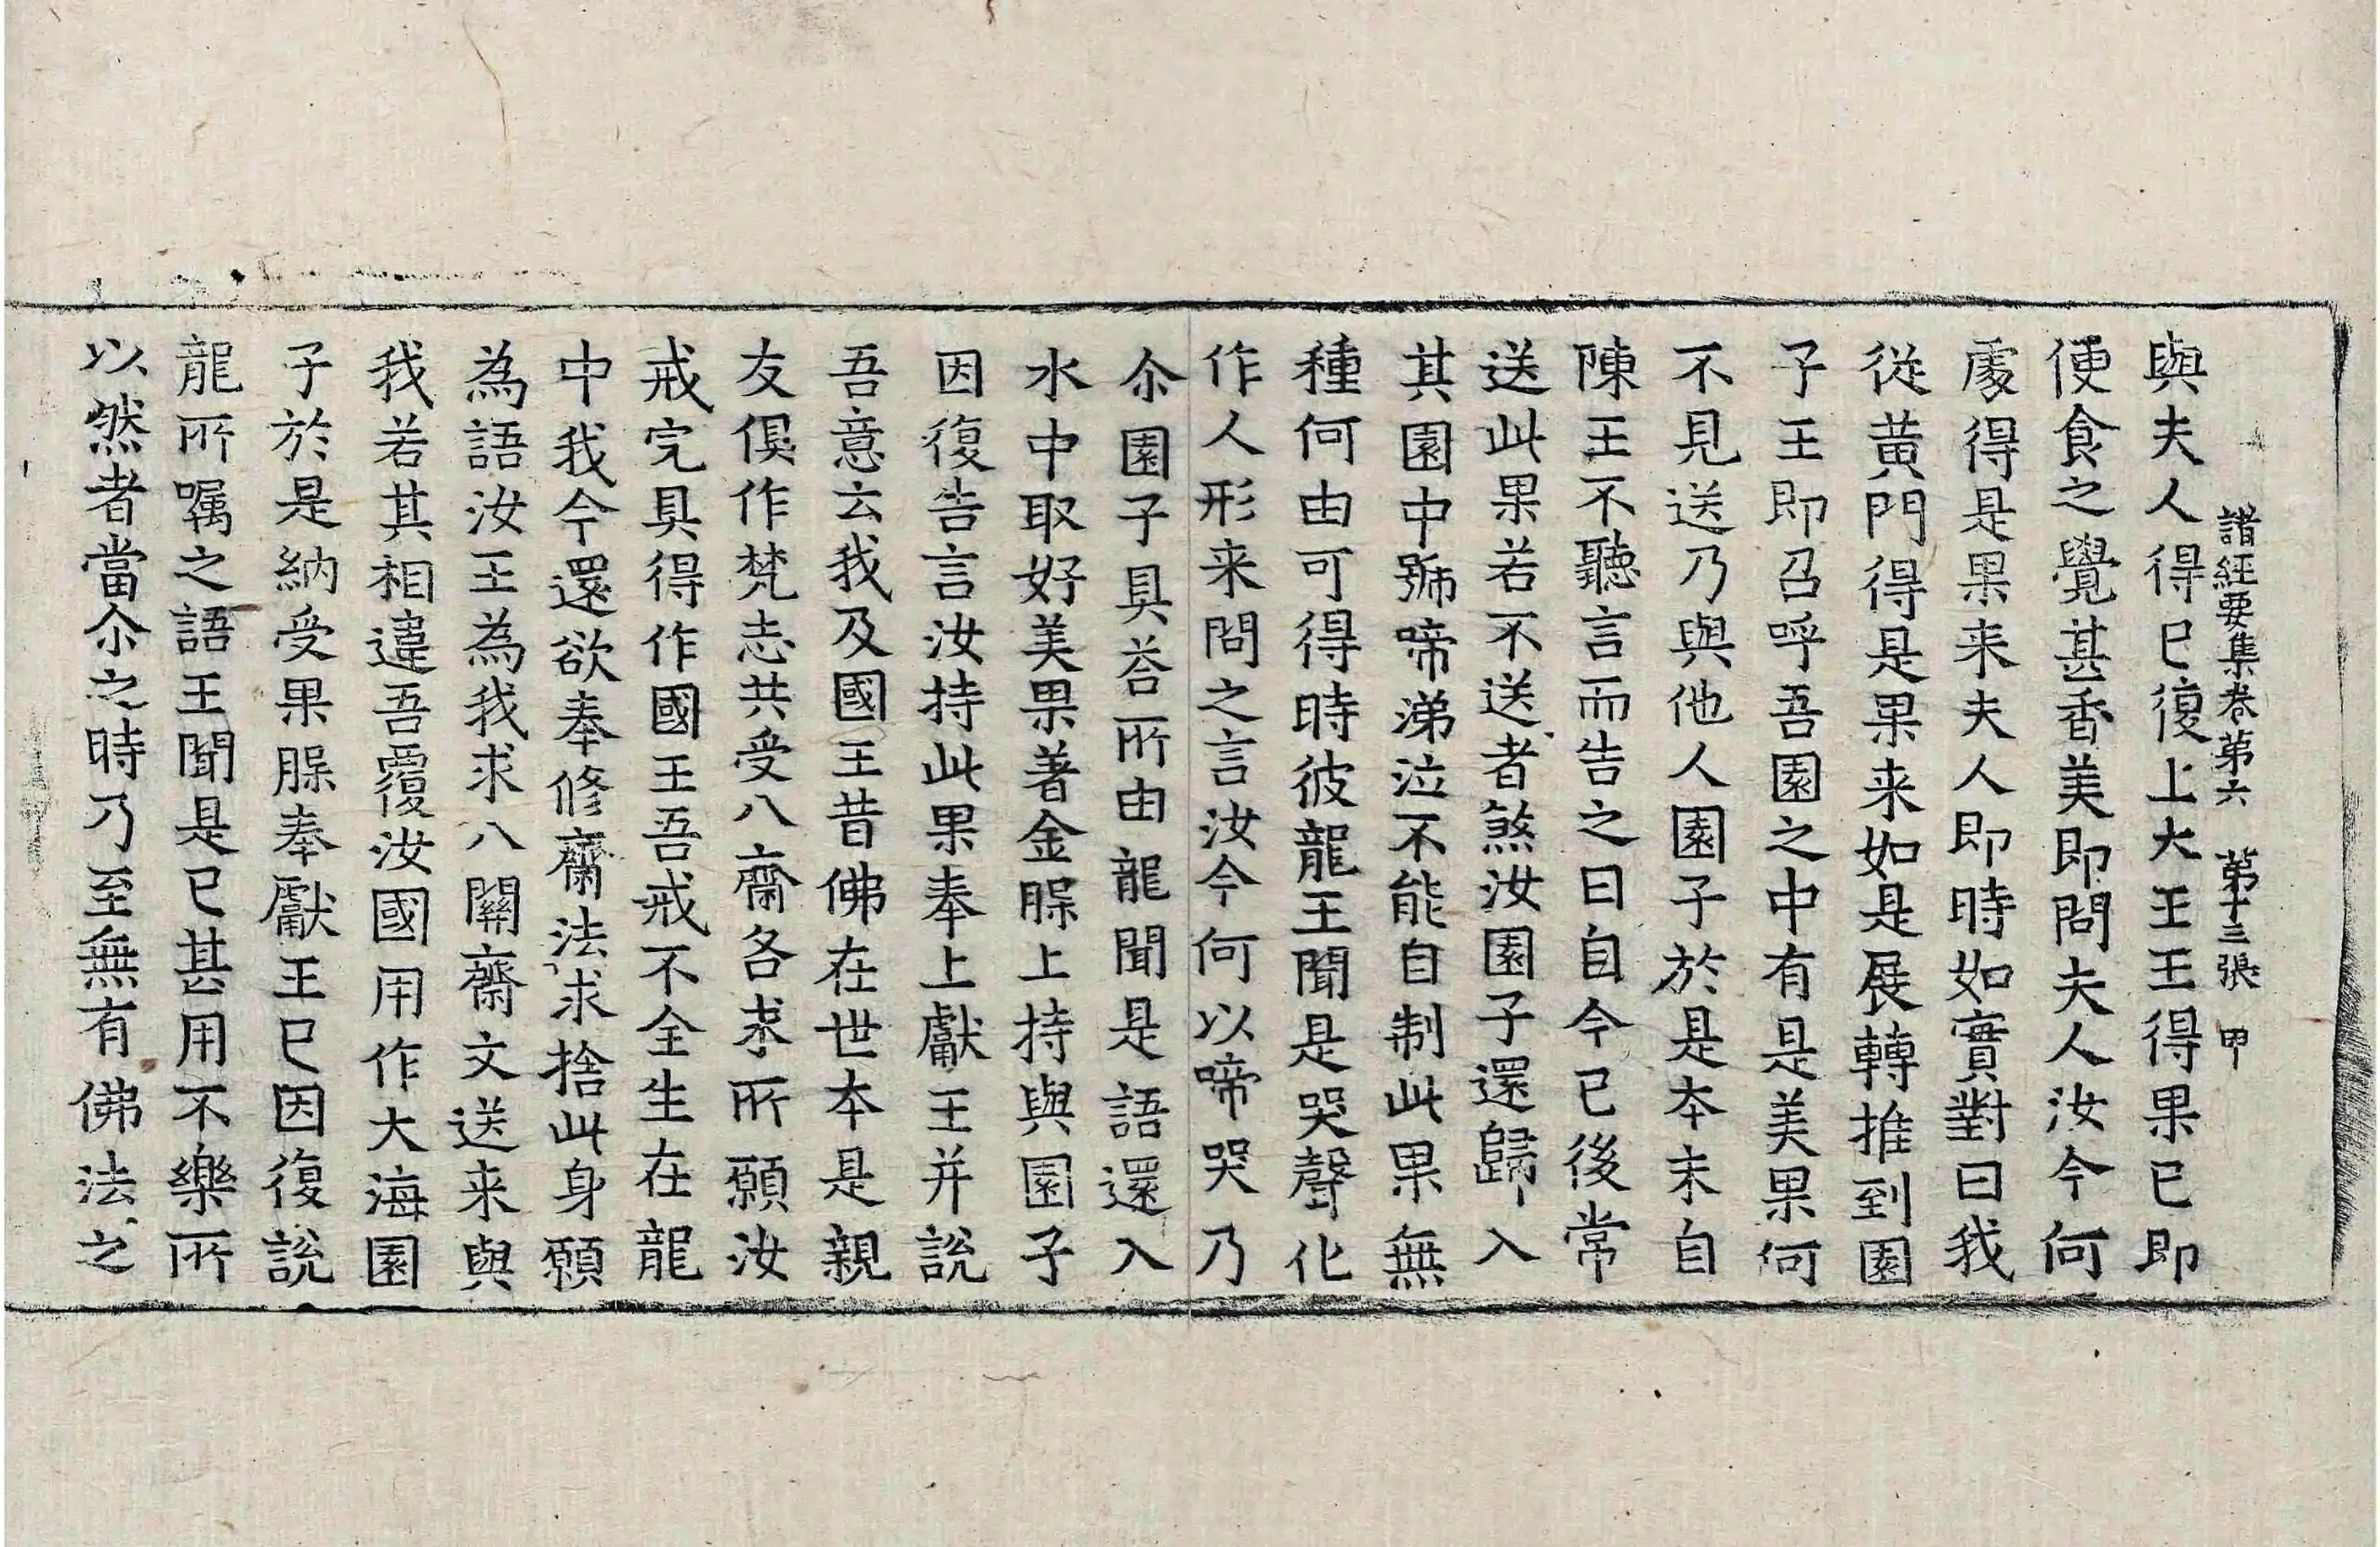 諸經要集卷第六 第十三張 甲
與夫人得已復上大王王得果已即
便食之覺甚香美即問夫人汝今何
處得是果来夫人即時如實對曰我
從黄門得是果来如是展轉推到園
子王即召呼吾園之中有是美果何
不見送乃與他人園子於是本末自
陳王不聽言而告之曰自今已後常
送此果若不送者煞汝園子還歸入
其園中號啼涕泣不能自制此果無
種何由可得時彼龍王聞是哭聲化
作人形来問之言汝今何以啼哭乃
尒園子具荅所由龍聞是語還入
水中取好美果著金䐧上持與園子
因復告言汝持此果奉上獻王并説
吾意云我及國王昔佛在世本是親
友俱作梵志共受八齋各求所願汝
戒完具得作國王吾戒不全生在龍
中我今還欲奉修齋法求捨此身願
為語汝王為我求八關齋文送来與
我若其相違吾覆汝國用作大海園
子於是納受果䐧奉獻王已因復説
龍所嘱之語王聞是已甚用不樂所
以然者當尒之時乃至無有佛法之